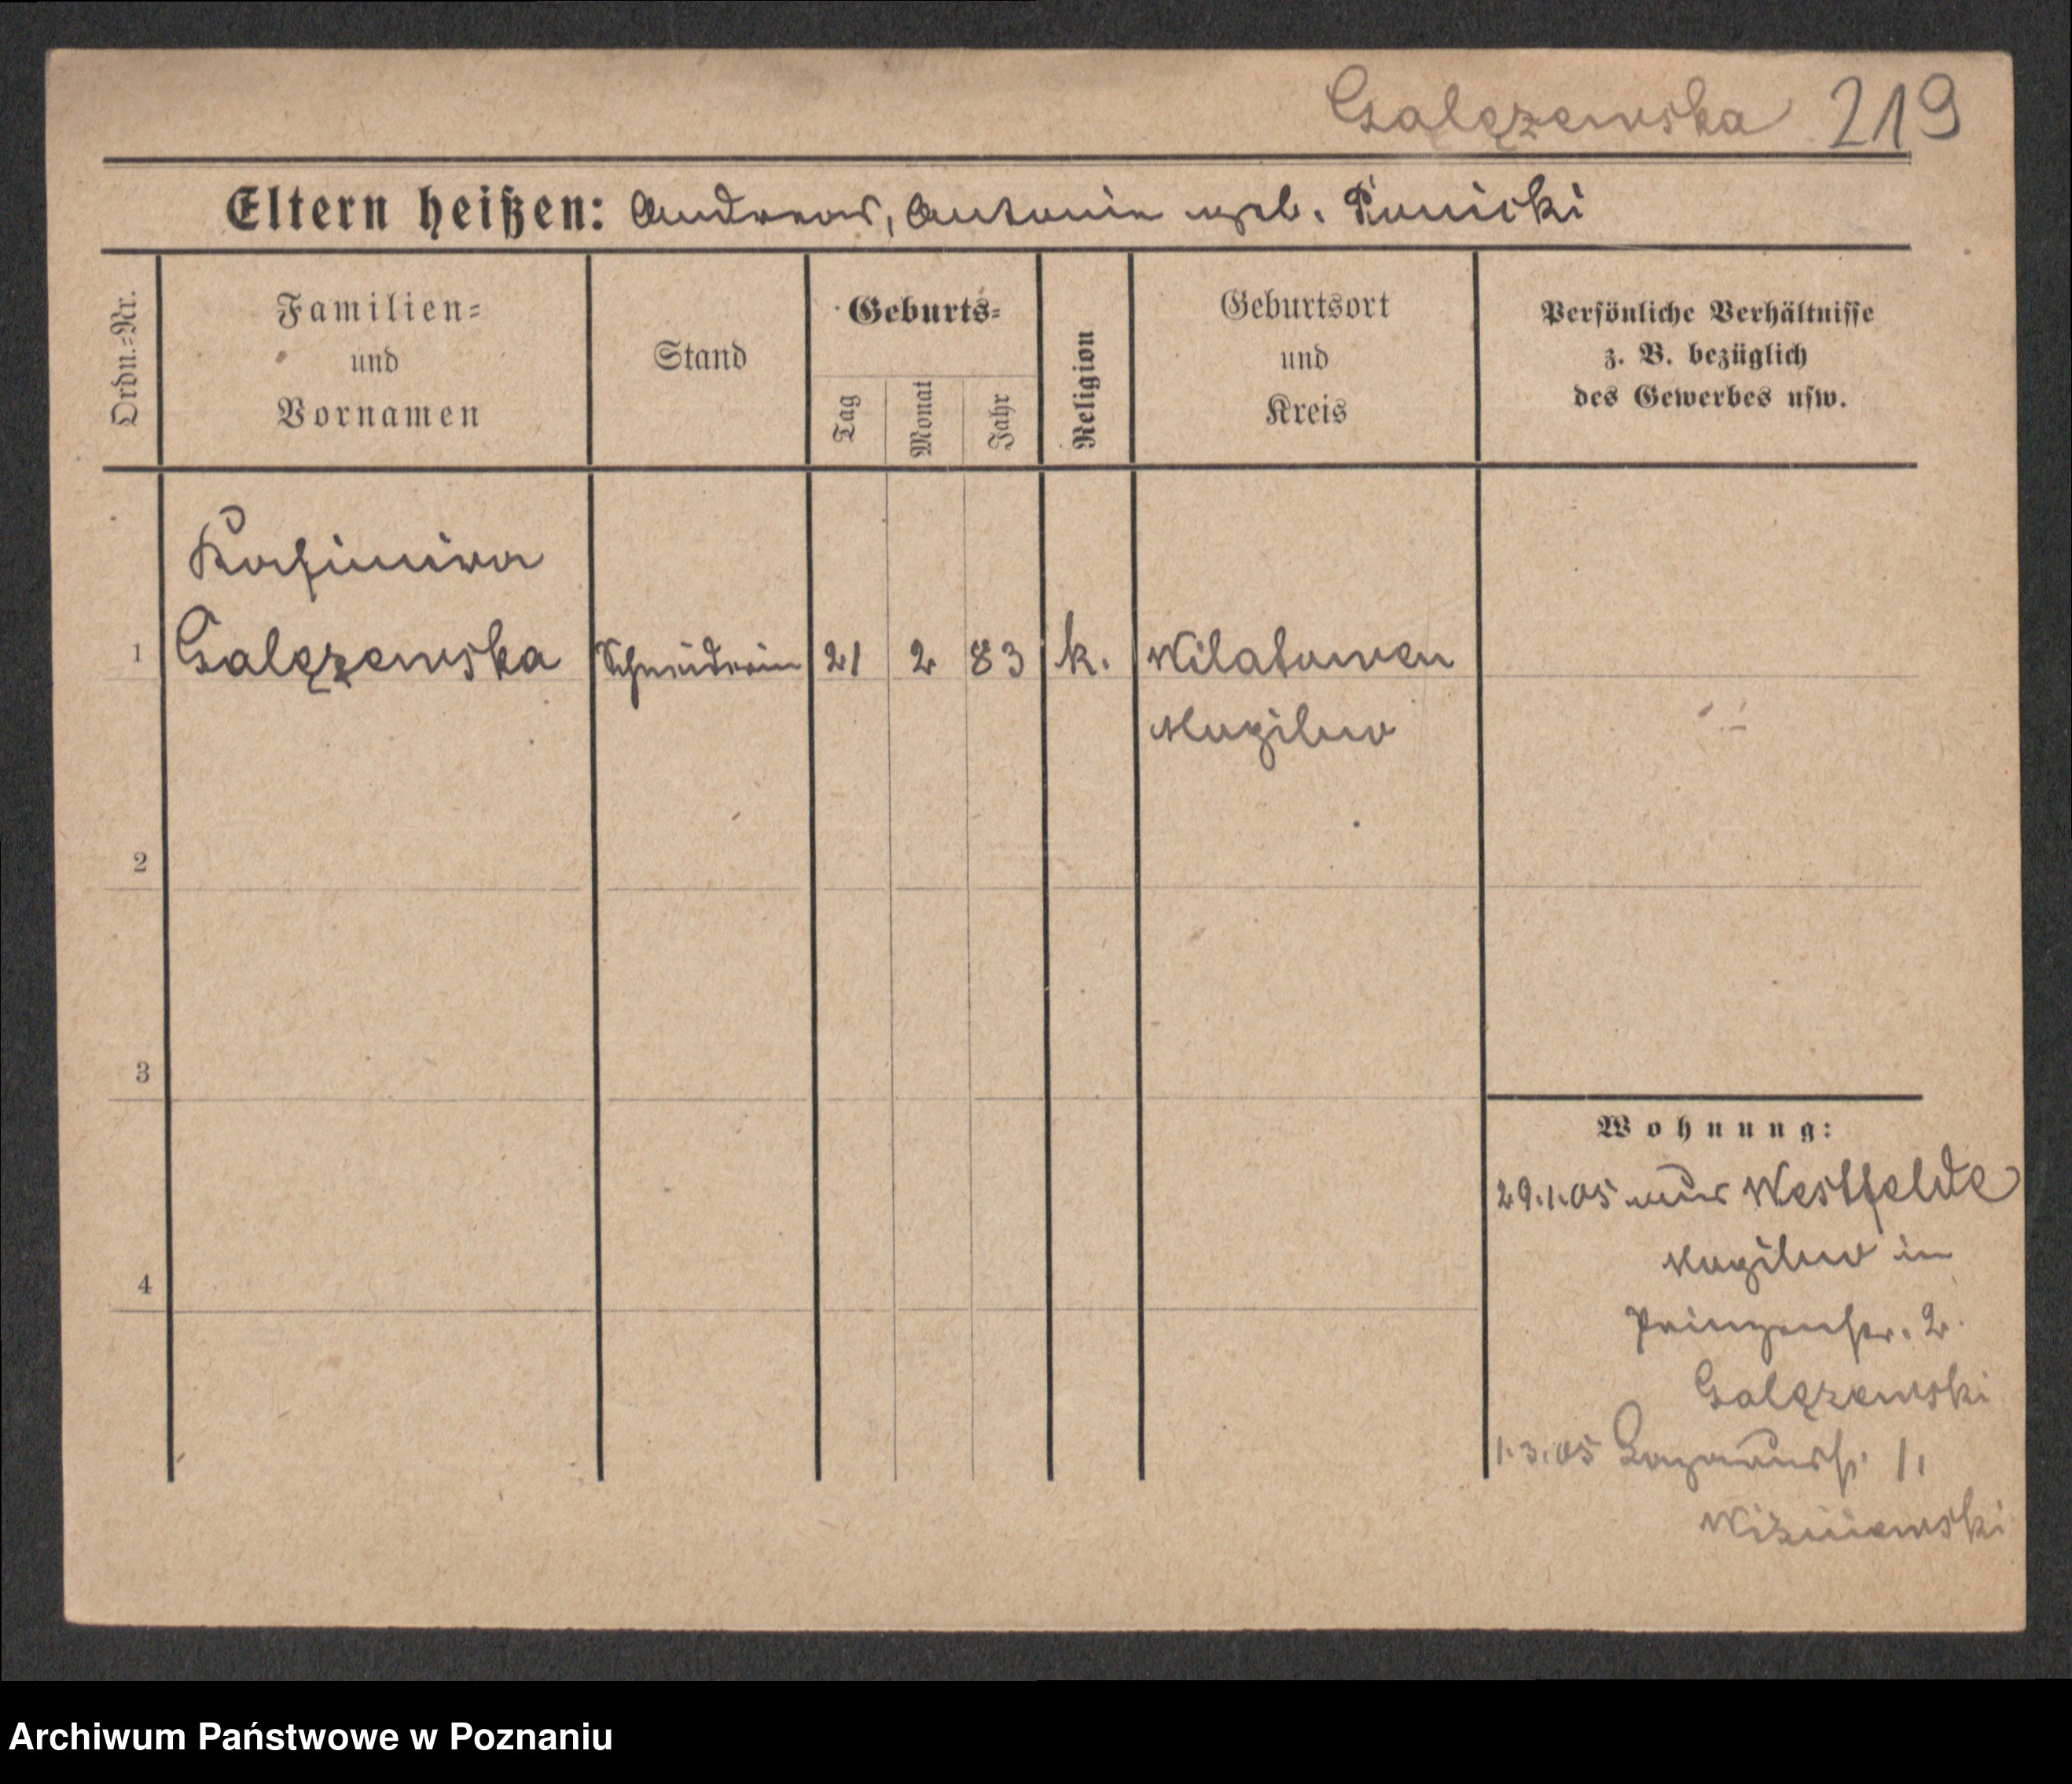 Galęzewska 219
Eltern heißen: Andreas, Antonie geb.
Ordn.=Nr.
Familien=
und
Vornamen
Stand
Geburts=
Tag
Monat
Jahr
Religion
Geburtsort
und
Kreis
Persönliche Verhältnisse
z. B. bezüglich
des Gewerbes usw.
Kasimira
1 Galęzewska Schneiderin 21 2 83 k. Wilatowen
Mogilno
2
3
4
Wohnung:
29.1.05 aus Westfelde
Mogilno in
Prinzenstr. 2.
Galęzewski
1.3.05 1.
Archiwum Państwowe w Poznaniu